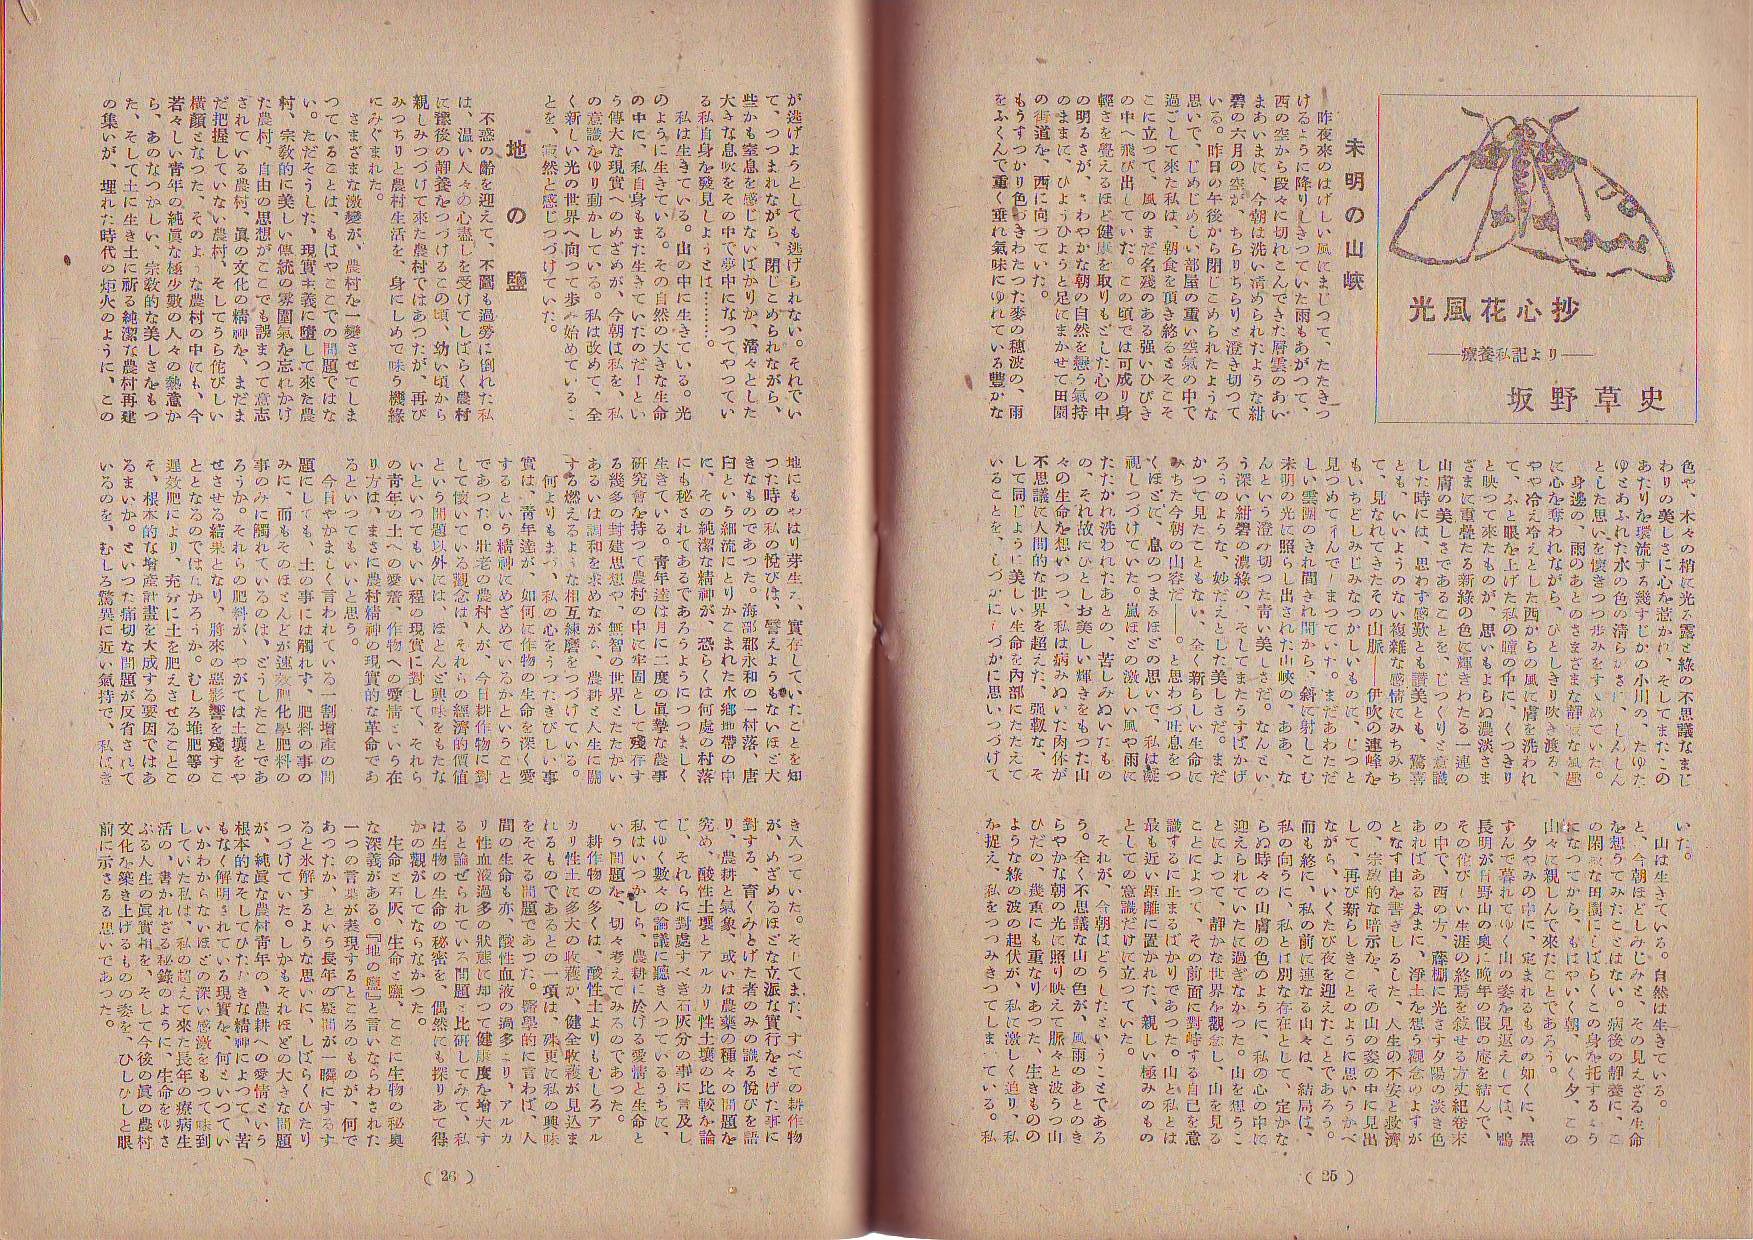 光風花心抄
―療養私記より―
坂野草史
未明の山峽
昨夜來のはげしい風にまじつて、たたきつ
けるように降りしきつていた雨もあがつて、
西の空から段々に切れこんできた層雲のあい
まあいまに、今朝は洗い淸められたような紺
碧の六月の空が、ちらりちらりと澄み切つて
いる。昨日の午後から閉じこめられたような
思いで、じめじめしい部屋の重い空氣の中で
過ごして來た私は、朝食を頂き終るとそこそ
こに立つて、風のまだ名殘のある强いひびき
の中へ飛び出していた。この頃では可成り身
輕さを覺えるほど健康を取りもどした心の中
の明るさが、さわやかな朝の自然を戀う氣持
のままに、ひようひようと足にまかせて田園
の街道を、西に向つていた。
もうすつかり色づきわたつた麥の穗波の、雨
をふくんで重く垂れ氣味にゆれている豐かな
色や、木々の梢に光る露と綠の不思議なまじ
わりの美しさに心を惹かれ、そしてまたこの
あたりを環流する幾すじかの小川の、たゆた
ゆとあふれた水の色の淸らかさに、しんしん
とした思いを懷きつつ歩みをすゝめていた。
身邊の、雨のあとのさまざまな靜寂な風趣
に心を奪われながら、ひとしきり吹き渡る、
やや冷え冷えとした西からの風に膚を洗われ
て、ふと眼を上げた私の瞳の中に、くつきり
と映つて來たものが、思いもよらぬ濃淡さま
ざまに重疊たる新綠の色に輝きわたる一連の
山膚の美しさであることを、じつくりと意識
した時には、思わず感歎とも讃美とも、驚喜
とも、いいようのない複雜な感情にみちみち
て、見なれてきたその山脈――伊吹の連峰を
もいちどしみじみなつかしいものに、じつと
見つめて佇んでしまつていた。まだあわただ
しい雲團のきれ間きれ間から、斜に射しこむ
未明の光に照らし出された山峽の、ああ、な
んという澄み切つた靑い美しさだ。なんとい
う深い紺碧の濃綠の、そしてまたうすばかげ
ろうのような、妙だえとした美しさだ。まだ
かつて見たこともない、全く新らしい生命に
みちた今朝の山容だ――。と思わづ吐息をつ
くほどに、息のつまるほどの思いで、私は凝
視しつづけていた。嵐ほどの激しい風や雨に
たたかれ洗われたあとの、苦しみぬいたもの
の、それ故にひとしお美しい輝きをもつた山
々の生命を想いつつ、私は病みぬいた肉体が
不思議に人間的な世界を超えた、强靱な、そ
して同じように美しい生命を内部にたたえて
いることを、しづかにしづかに思いつづけて
いた。
山は生きている。自然は生きている。――
と、今朝ほどしみじみと、その見えざる生命
を想うてみたことはない。病後の靜養に、こ
の閑寂な田園にしばらくこの身を托するよう
になつてから、もはやいく朝、いく夕、この
山々に親しんで來たことであろう。
夕やみの中に、定まれるものの如くに、黑
ずんで暮れてゆく山の姿を見返えしては、鴨
長明が日野山の奧に晩年の假の庵を結んで、
その侘びしい生涯の終焉を敍せる方丈紀卷末
の中で、西の方、藤棚に光さす夕陽の淡き色
あればあるままに、淨土を想う觀念のよすが
となす由を書きしるした、人生の不安と救濟
の、宗敎的な暗示を、その山の姿の中に見出
して、再び新らしきことのように思いうかべ
ながら、いくたび夜を迎えたことであろう。
而も終に、私の前に連なる山々は、結局は、
私の向うに、私とは別な存在として、定かな
らぬ時々の山膚の色のように、私の心の中に
迎えられていたに過ぎなかつた。山を想うこ
とによつて、靜かな世界を觀念し、山を見る
ことによつて、その前面に對峙する自己を意
識するに止まるばかりであつた。山と私とは
最も近い距離に置かれた、親しい極みのもの
としての意識だけに立つていた。
それが、今朝はどうしたということであろ
う。全く不思議な山の色が、風雨のあとのき
らやかな朝の光に照り映えて脈々と波うつ山
ひだの、幾重にも重なりあつた、生きものの
ような綠の波の起伏が、私に激しく迫り、私
を捉え、私をつつみきつてしまつている。私
(25)
が逃げようとしても逃げられない。それでい
て、つつまれながら、閉じこめられながら、
些かも窒息を感じないばかりか、淸々とした
大きな息吹をその中で夢中になつてやつてい
る私自身を發見しようとは……。
私は生きている。山の中に生きている。光
のように生きている。その自然の大きな生命
の中に、私自身もまた生きていたのだ！とい
う偉大な現實へのめざめが、今朝は私を、私
の意識をゆり動かしている。私は改めて、全
く新しい光の世界へ向つて歩み始めているこ
とを、寂然と感じつづけていた。
地の鹽
不惑の齡を迎えて、不圖も過勞に倒れた私
は、溫い人々の心盡しを受けてしばらく農村
に豫後の靜養をつづけるこの頃、幼い頃から
親しみつづけて來た農村ではあつたが、再び
みつちりと農村生活を、身にしめて味う機緣
にみぐまれた。
さまざまな激變が、農村を一變させてしま
つていることは、もはやここでの問題ではな
い。ただそうした、現實主義に墮して來た農
村、宗敎的に美しい傳統の雰圍氣を忘れかけ
た農村、自由の思想がここでも誤まつて意志
されている農村、眞の文化の精神を、まだま
だ把握していない農村、そしてうら侘びしい
橫顏となつた、そのような農村の中にも、今
若々しい靑年の純眞な極少數の人々の熱意か
ら、あのなつかしい、宗敎的な美しさをもつ
た、そして土に生き土に祈る純潔な農村再建
の集いが、埋れた時代の炬火のように、この
地にもやはり芽生え、實存していたことを知
つた時の私の悅びは、譬えようもないほど大
きなものであつた。海部郡永和の一村落、唐
臼という細流にとりかこまれた水鄕地帶の中
に、その純潔な精神が、恐らくは何處の村落
にも秘されてあるであろうようにつつましく
生きている。靑年達は月に二度の眞摯な農事
研究會を持つて農村の中に牢固として殘存す
る幾多の封建思想や、無智の世界とたたかい
あるいは調和を求めながら、農耕と人生に關
する燃えるような相互練磨をつづけている。
何よりもまづ、私の心をうつたきびしい事
實は、靑年達が、如何に作物の生命を深く愛
するという精神にめざめているかということ
であつた。壯老の農村人が、今日耕作物に對
して懷いている觀念は、それらの經濟的價値
という問題以外には、ほとんど興味をもたな
いといつてもいい程の現實に對して、それら
の靑年の土への愛着、作物への愛情という在
り方は、まさに農村精神の現實的な革命であ
るといつてもいいと思う。
今日やかましく言われている一割增產の問
題にしても、土の事には觸れず、肥料の事の
みに、而もそのほとんどが速效肥化學肥料の
事のみに觸れているのは、どうしたことであ
ろうか。それらの肥料が、やがては土壤をや
せさせる結果となり、將來の惡影響を殘すこ
ととなるのではなかろうか。むしろ堆肥等の
遲效肥により、充分に土を肥えさせることこ
そ、根本的な增產計畫を大成する要因ではあ
るまいか。といつた痛切な問題が反省されて
いるのを、むしろ驚異に近い氣持で、私はき
き入つていた。そしてまた、すべての耕作物
が、めざめるほどな立派な實行をとげた事に
對する、育くみとげた者のみの識る悅びを語
り、農耕と氣象、或いは農藥の種々の問題を
究め、酸性土壤とアルカリ性土壤の比較を論
じ、それらに對處すべき石灰分の事に言及し
てゆく數々の論議に聽き入つているうちに、
私はいつかしら、農耕に於ける愛情と生命と
いう問題を、切々考えてみるのであつた。
耕作物の多くは、酸性土よりもむしろアル
カリ性土に多大の收穫か、健全收穫が見込ま
れるものであるとの一項は、殊更に私の興味
をそそる問題であつた。醫學的に言わば、人
間の生命も亦、酸性血液の過多より、アルカ
リ性血液過多の狀態に却つて健康度を增大す
ると論ぜられている問題と比硏してみて、私
は生物の生命の秘密を、偶然にも探りあて得
かの觀がしてならなかつた。
生命と石灰、生命と鹽、ここに生物の秘奧
な深義がある。『地の鹽』と言いならわされた
一つの言葉が表現するところのものが、何で
あつたか、という長年の疑問が一瞬にするす
ると氷解するような思いに、しばらくひたり
つづけていた。しかもそれほどの大きな問題
が、純眞な農村靑年の、農耕への愛情という
根本的なそしてひたむきな精神によつて、苦
もなく解明されている現實を、何といつてい
いかわからないほどの深い感激をもつて味到
していた私は、私の超えて來た長年の療病生
活の、書かれざる秘錄のように、生命をゆさ
ぶる人生の眞實相を、そして今後の眞の農村
文化を築き上げるものの姿を、ひしひしと眼
前に示さるる思いであつた。
(26)